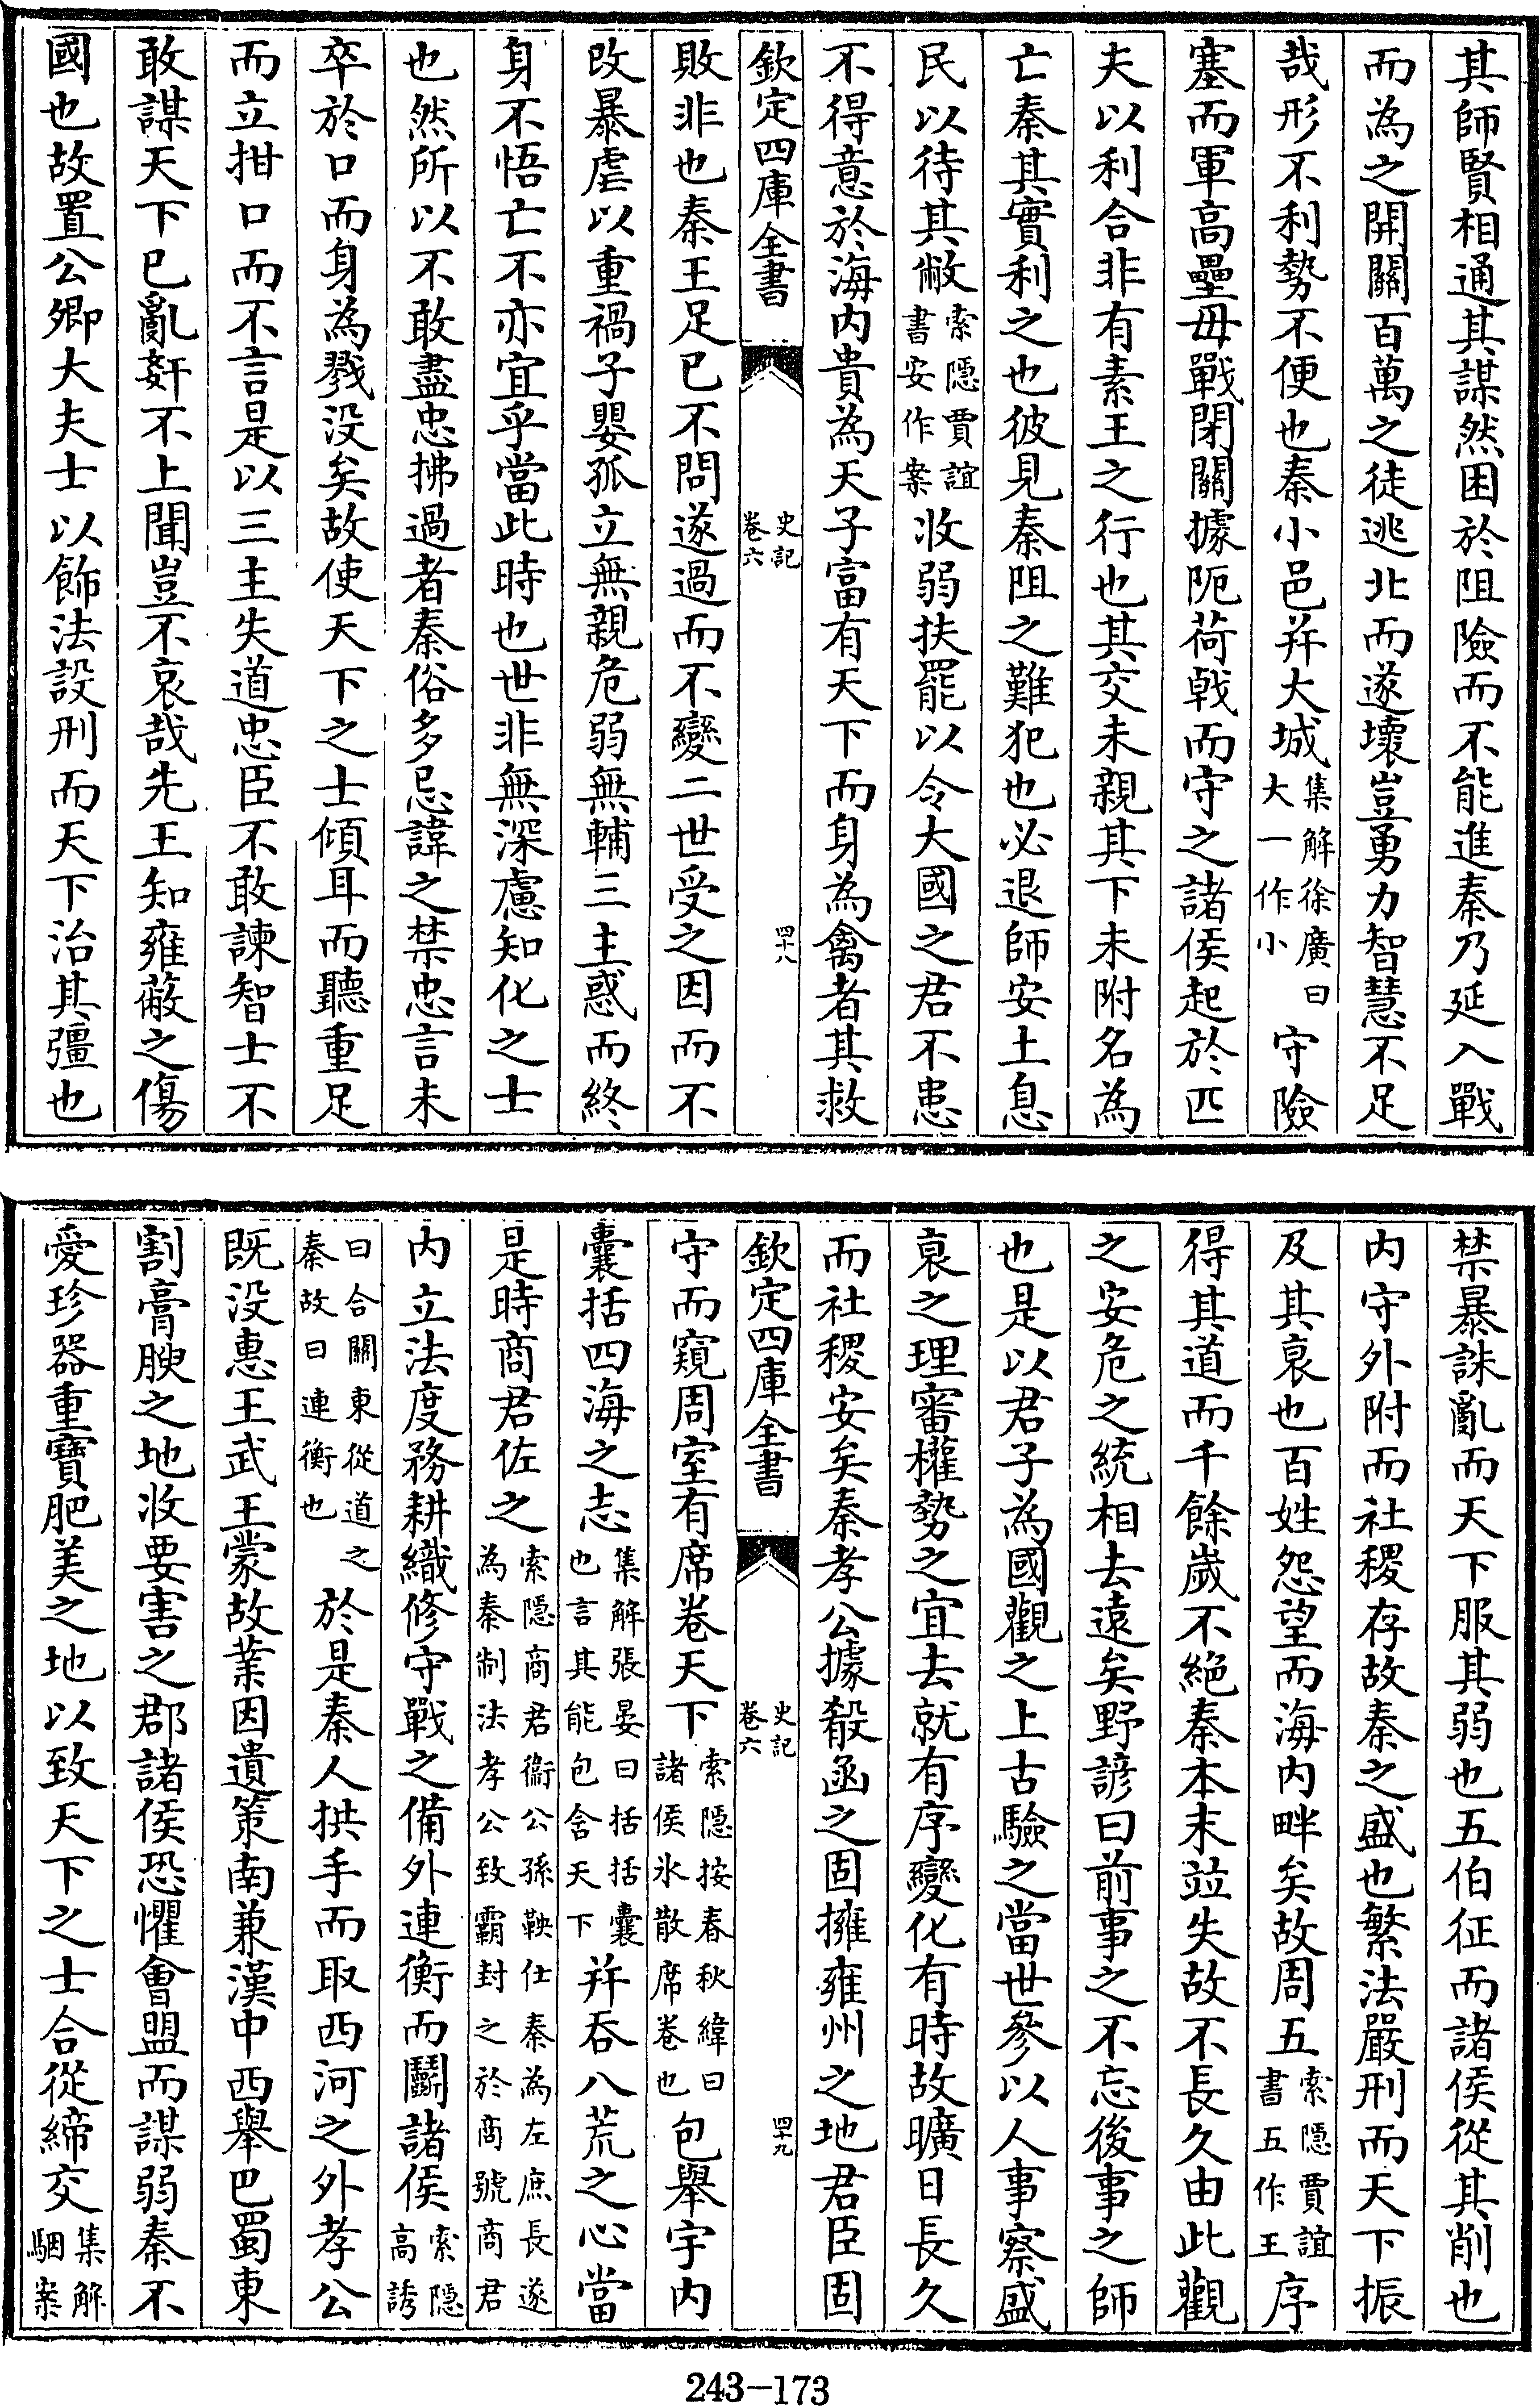 其師賢相通其謀然困於阻險而不能進秦乃延入戰
而為之開關百萬之徒逃北而遂壞豈勇力智慧不足
哉形不利勢不便也秦小邑并大城集解徐廣曰大一作小守險
塞而軍高壘毋戰閉關據阨荷戟而守之諸侯起於匹
夫以利合非有素王之行也其交未親其下未附名為
亡秦其實利之也彼見秦阻之難犯也必退師安土息
民以待其敝索隱賈誼書安作案收弱扶罷以令大國之君不患
不得意於海内貴為天子富有天下而身為禽者其救
欽定四庫全書 史記卷六 四十八
敗非也秦王足已不問遂過而不變二世受之因而不
改暴虐以重禍子嬰孤立無親危弱無輔三主惑而終
身不悟亡不亦宜乎當此時也世非無深慮知化之士
也然所以不敢盡忠拂過者秦俗多忌諱之禁忠言未
卒於口而身為戮没矣故使天下之士傾耳而聽重足
而立拑口而不言是以三主失道忠臣不敢諫智士不
敢謀天下已亂奸不上聞豈不哀哉先王知雍蔽之傷
國也故置公卿大夫士以飾法設刑而天下治其彊也
禁暴誅亂而天下服其弱也五伯征而諸侯從其削也
内守外附而社稷存故秦之盛也繁法嚴刑而天下振
及其衰也百姓怨望而海内畔矣故周五索隱賈誼書五作王序
得其道而千餘歲不絶秦本末竝失故不長久由此觀
之安危之統相去遠矣野諺曰前事之不忘後事之師
也是以君子為國觀之上古驗之當世參以人事察盛
衰之理審權勢之宜去就有序變化有時故曠日長久
而社稷安矣秦孝公據殽函之固擁雍州之地君臣固
欽定四庫全書 史記卷六 四十九
守而窺周室有席卷天下索隱按春秋緯曰諸侯氷散席卷也包舉宇内
囊括四海之志集解張晏曰括括囊也言其能包含天下并吞八荒之心當
是時商君佐之索隱商君衞公孫鞅仕秦為左庶長遂為秦制法孝公致霸封之於商號商君
内立法度務耕織修守戰之備外連衡而鬭諸侯索隱高誘
曰合關東從道之秦故曰連衡也於是秦人拱手而取西河之外孝公
既没惠王武王蒙故業因遺策南兼漢中西舉巴蜀東
割膏腴之地收要害之郡諸侯恐懼會盟而謀弱秦不
愛珍器重寶肥美之地以致天下之士合從締交集解駰案
243-173